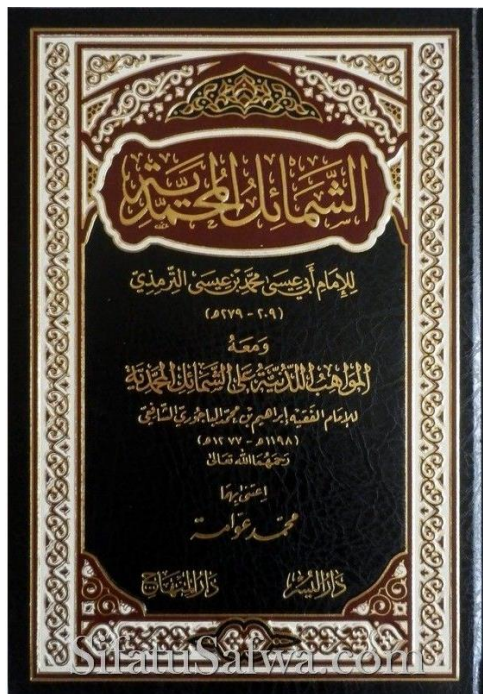 الشَّمَائِلُ المُحَمَّديَّة
لِلإِمَامِ أَبي عِيسَى مُحَمَّدِ بْنِ عِيسَى التِّرمِذِيّ
(٢٠٩ - ٢٧٩هـ)
وَمَعَهُ
المَوَاهِبُ اللَّدُنِيَّة عَلَى الشَّمَائِلِ المُحَمَّديَّة
للإمَام الفَقيْه إبراهيم بن محمّد الباجوري الشافعي
(١١٩٨هـ - ١٢٧٧هـ)
رَحِمَهُمَا الله تَعَالىٰ
اعتنى بِهِمَا
محمّد عوّامة
دَارُ اليُسْر دَارُ المِنْهَاج
SifatuSafwa.com